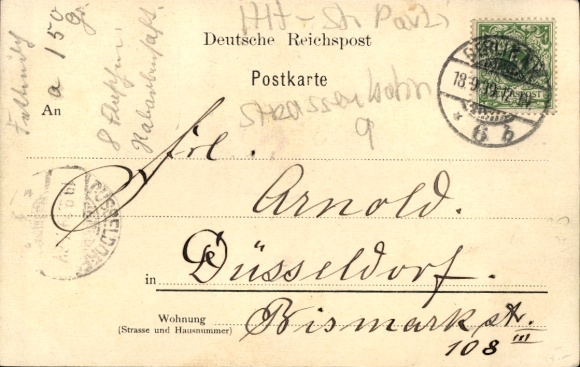 HH - St Pauli
Deutsche Reichspost
Postkarte
Strassenbahn
9
a 150 gr.
An
Frl.
Arnold.
in Düsseldorf.
Wohnung
(Strasse und Hausnummer)
Bismarkstr.
108 III
BERLIN
18.9.99.12-1N
* 6 b
DÜSSELDORF